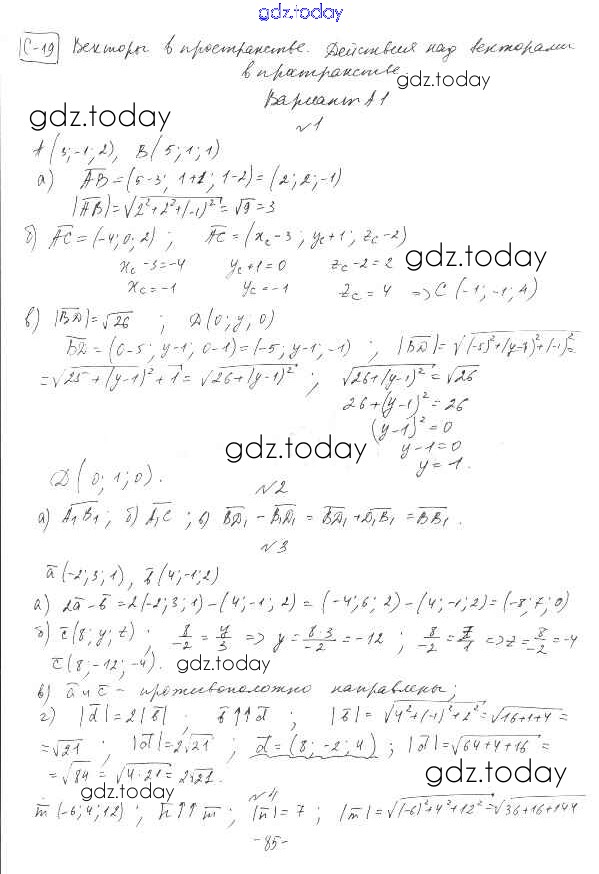 gdz.today
С-19 Векторы в пространстве. Действия над векторами
в пространстве
gdz.today
Вариант А1
gdz.today
№1
A(3;-1;2), B(5;1;1)
а) AB = (5-3; 1+1; 1-2) = (2; 2; -1)
|AB| = √(2²+2²+(-1)²) = √9 = 3
б) AC = (-4; 0; 2); AC = (x_c-3; y_c+1; z_c-2)
x_c-3=-4 y_c+1=0 z_c-2=2
gdz.today
x_c=-1 y_c=-1 z_c=4 => C(-1;-1;4)
в) |BD| = √26; D(0; y, 0)
BD = (0-5; y-1; 0-1) = (-5; y-1; -1); |BD| = √((-5)²+(y-1)²+(-1)²) =
= √(25+(y-1)²+1) = √(26+(y-1)²); √(26+(y-1)²) = √26
26+(y-1)² = 26
(y-1)² = 0
gdz.today
y-1=0
y=1.
D(0; 1; 0).
№2
а) A₁B₁; б) A₁C; в) BD₁ - B₁D₁ = BD₁ + D₁B₁ = BB₁.
№3
a(-2; 3; 1), b(4; -1; 2)
а) 2a - b = 2(-2; 3; 1) - (4; -1; 2) = (-4; 6; 2) - (4; -1; 2) = (-8; 7; 0)
б) c(8; y; z); 8/-2 = y/3 => y = 8·3/-2 = -12; 8/-2 = z/1 => z = 8/-2 = -4
c(8; -12; -4).
gdz.today
в) a и c - противоположно направлены;
г) |d| = 2|b|; b↑↑d; |b| = √(4²+(-1)²+2²) = √(16+1+4) =
= √21; |d| = 2√21; d = (8; -2; 4); |d| = √(64+4+16) =
= √84 = √(4·21) = 2√21.
gdz.today
№4
m(-6; 4; 12); n↑↑m; |n| = 7; |m| = √((-6)²+4²+12²) = √(36+16+144)
-85-